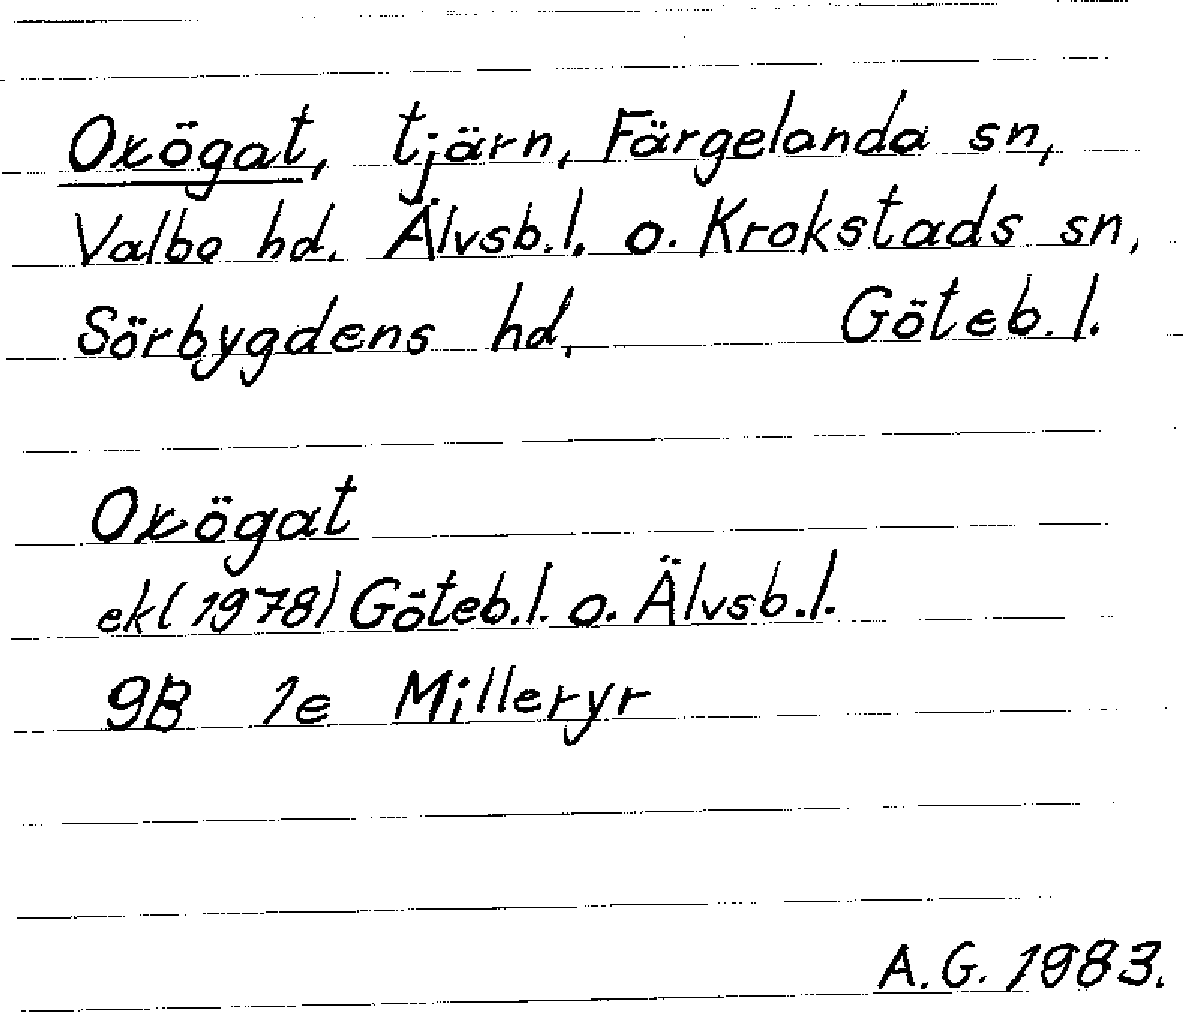 Oxögat, tjärn, Färgelanda sn,
Valbo hd. Älvsb.l. o. Krokstads sn,
Sörbygdens hd, Göteb.l.
Oxögat
ek(1978) Göteb.l. o. Älvsb.l.
9B 1e Milleryr
A.G. 1983.